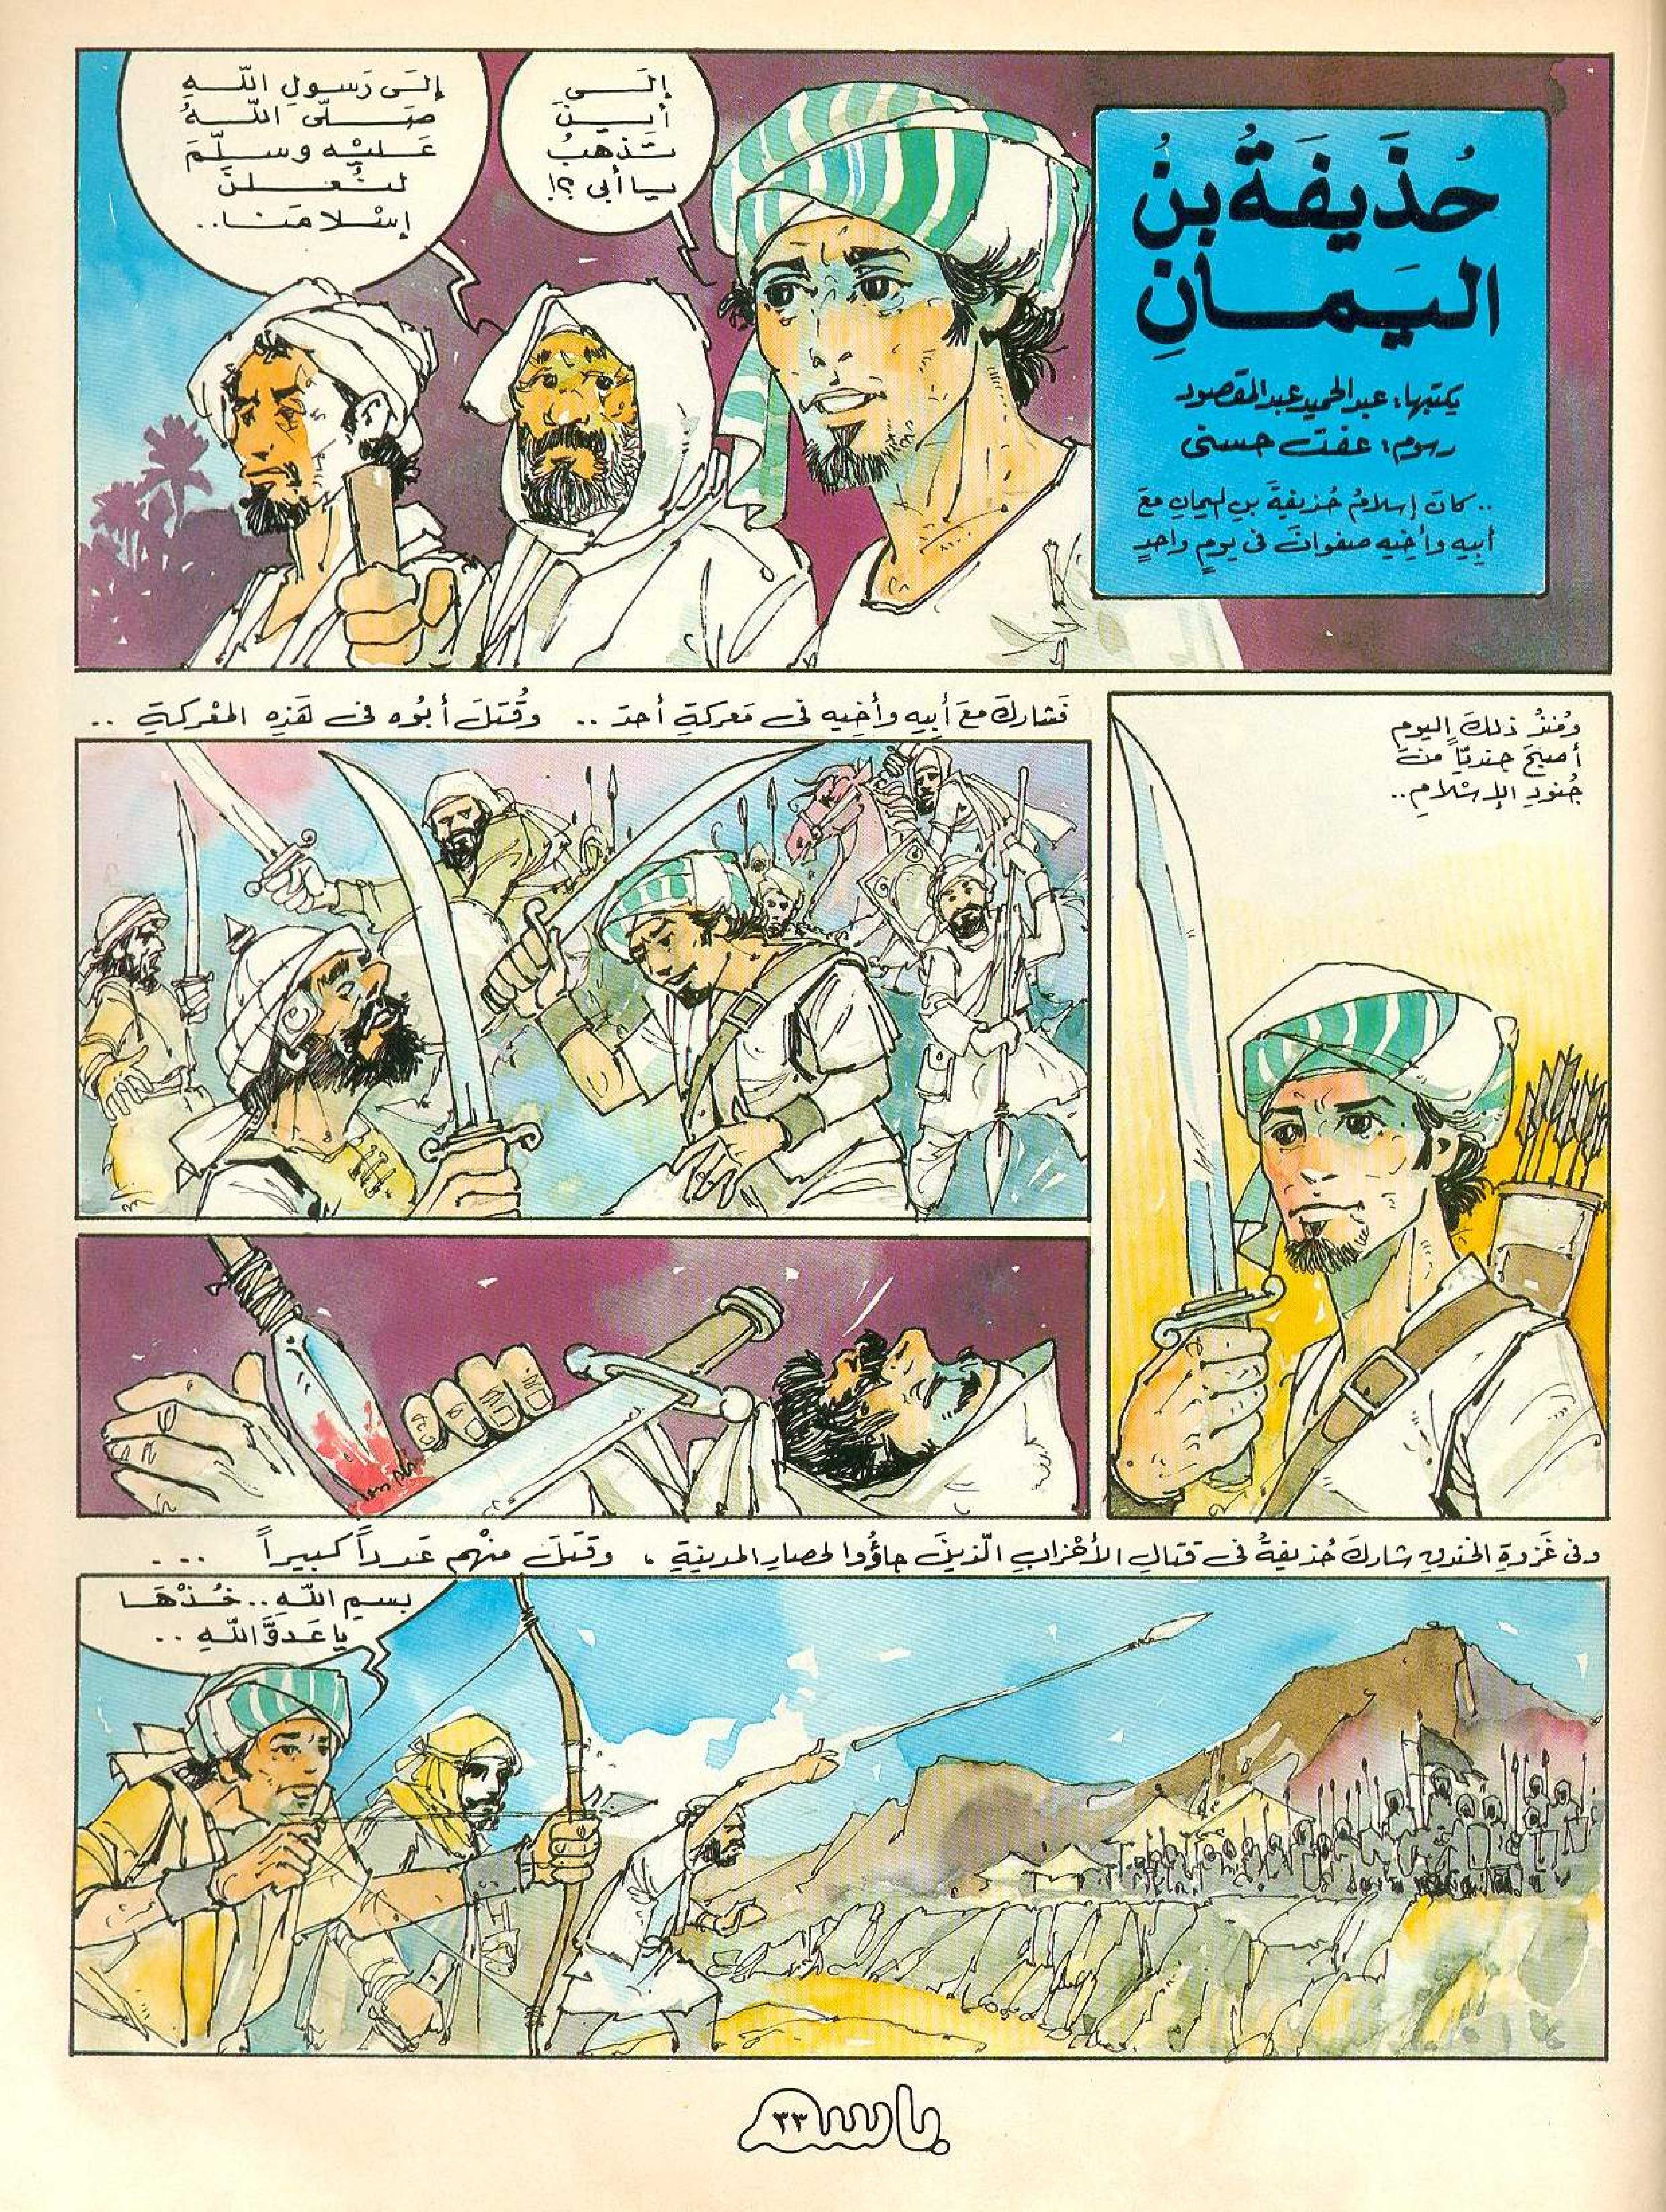 حُذَيفَةُ بنُ
اليَمَانِ
يكتبها: عبدالحميد عبدالمقصود
رسوم: عفت حسنى
.. كانَ إسلامُ حُذيفةَ بنِ اليمانِ معَ
أبيهِ وأخيهِ صفوانَ فى يومٍ واحدٍ
إلى
أينَ
تَذهبُ
يا أبى ؟!
إلَى رَسولِ اللّهِ
صَلّى اللّهُ
عَليْهِ وسلّمَ
لنُعلنَ
إسْلامَنا..
ومُنذُ ذلكَ اليومِ
أصبحَ جنديّاً منْ
جُنودِ الإسْلامِ..
فَشاركَ معَ أَبيهِ وأَخِيهِ فى مَعركةِ أحدَ .. وقُتلَ أبُوه فى هَذهِ المعْركةِ ..
وفى غَزوةِ الخندقِ شاركَ حُذيفةُ فى قتالِ الأحْزابِ الّذينَ جاؤُوا لحصارِ المدينةِ ، وقَتلَ منْهم عَدداً كبيراً ...
بسمِ اللّهِ.. خُذْهَا
يا عَدوَّ اللّهِ ..
باسم
٣٣